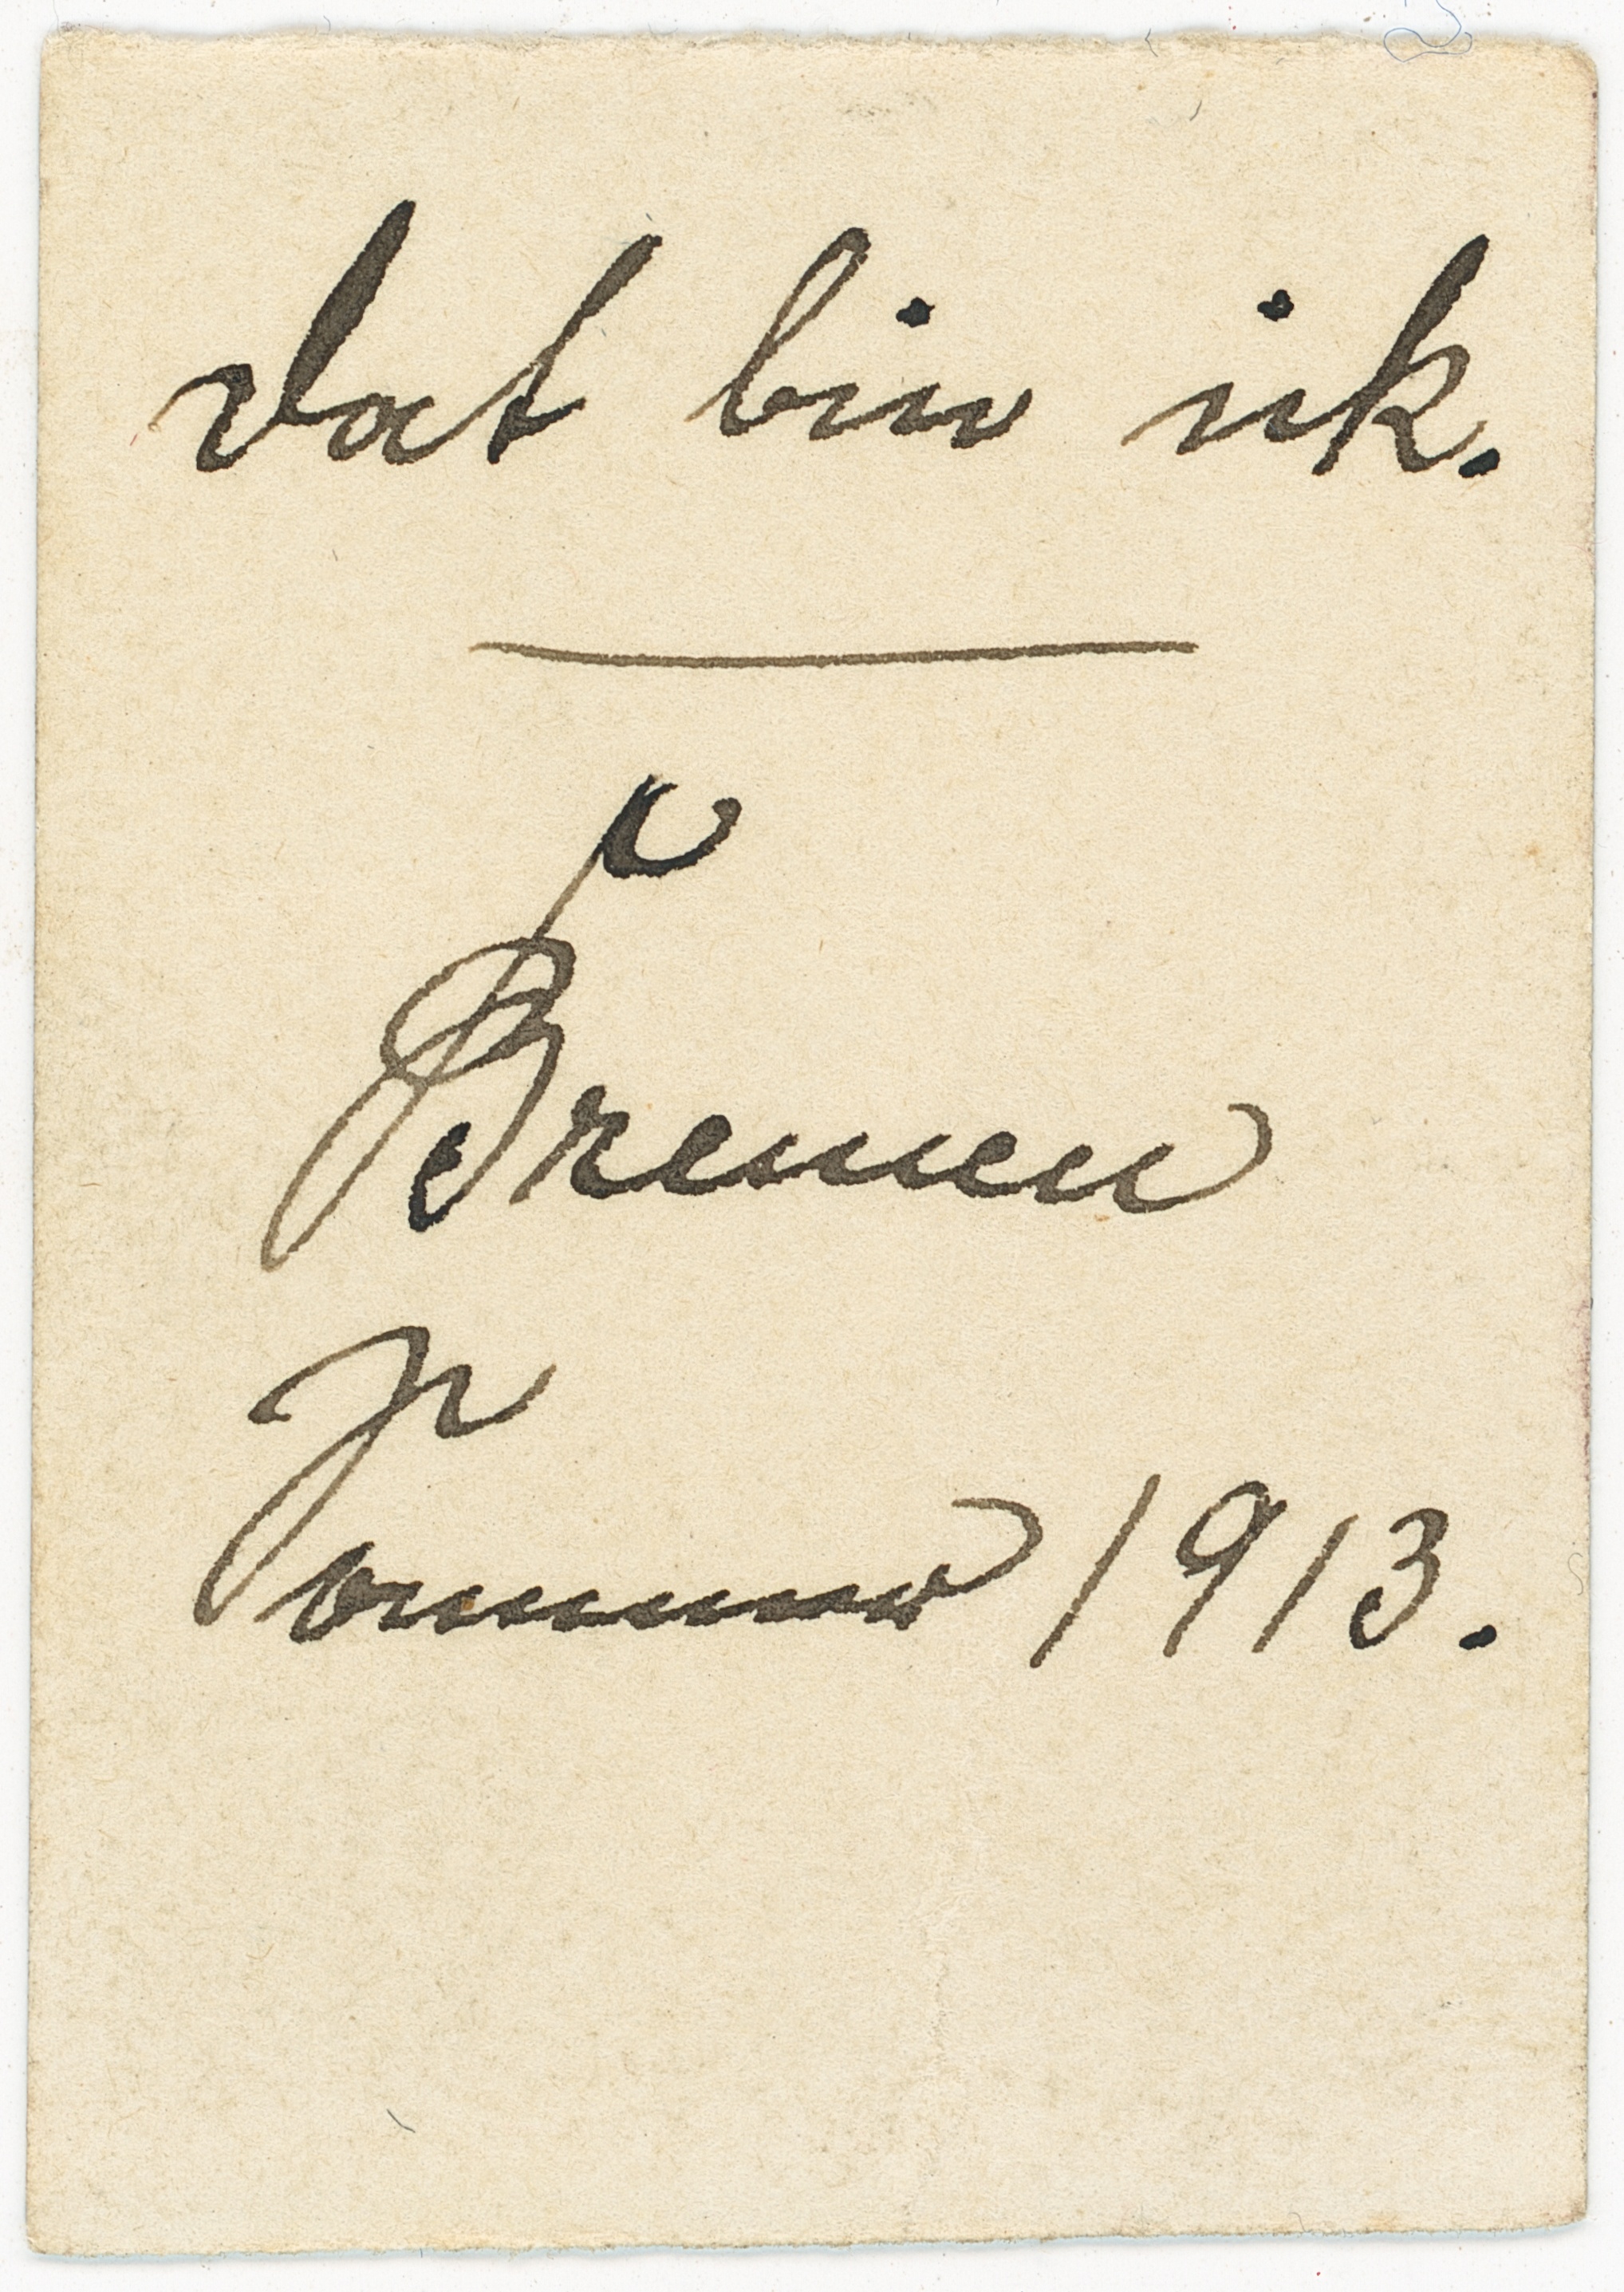 Dat bin ik.
Bremen
Sommer 1913.